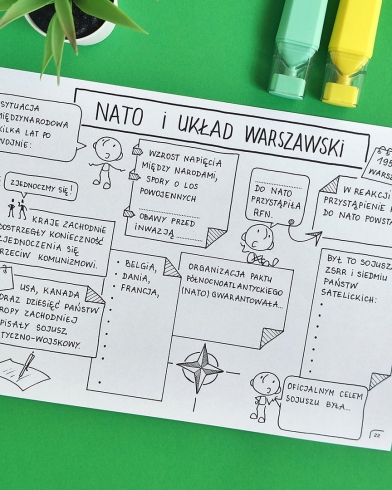 NATO i UKŁAD WARSZAWSKI
SYTUACJA
MIĘDZYNARODOWA
KILKA LAT PO
WOJNIE:
WZROST NAPIĘCIA
MIĘDZY NARODAMI,
SPORY O LOS
POWOJENNYCH
OBAWY PRZED
INWAZJĄ
ZJEDNOCZMY SIĘ!
KRAJE ZACHODNIE
DOSTRZEGŁY KONIECZNOŚĆ
ZJEDNOCZENIA SIĘ
PRZECIW KOMUNIZMOWI.
USA, KANADA
ORAZ DZIESIĘĆ PAŃSTW
ROPY ZACHODNIEJ
PISAŁY SOJUSZ
TYCZNO-WOJSKOWY.
• BELGIA,
• DANIA,
• FRANCJA,
DO NATO
PRZYSTĄPIŁA
RFN.
ORGANIZACJA PAKTU
PÓŁNOCNOATLANTYCKIEGO
(NATO) GWARANTOWAŁA...
195
WARSZ
W REAKCJI
PRZYSTĄPIENIE
DO NATO POWSTA
BYŁ TO SOJUSZ
ZSRR I SIEDMIU
PAŃSTW
SATELICKICH:
OFICJALNYM CELEM
SOJUSZU BYŁA...
22